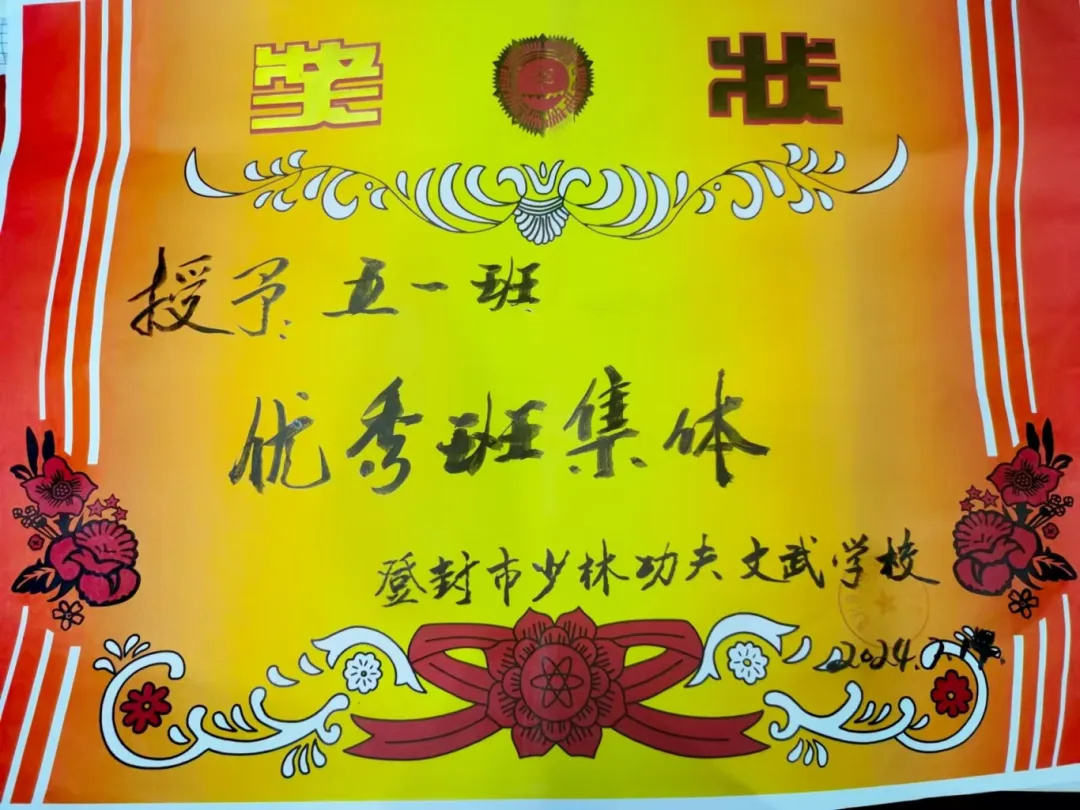 奖 状
授予: 五一班
优秀班集体
登封市少林功夫文武学校
2024.